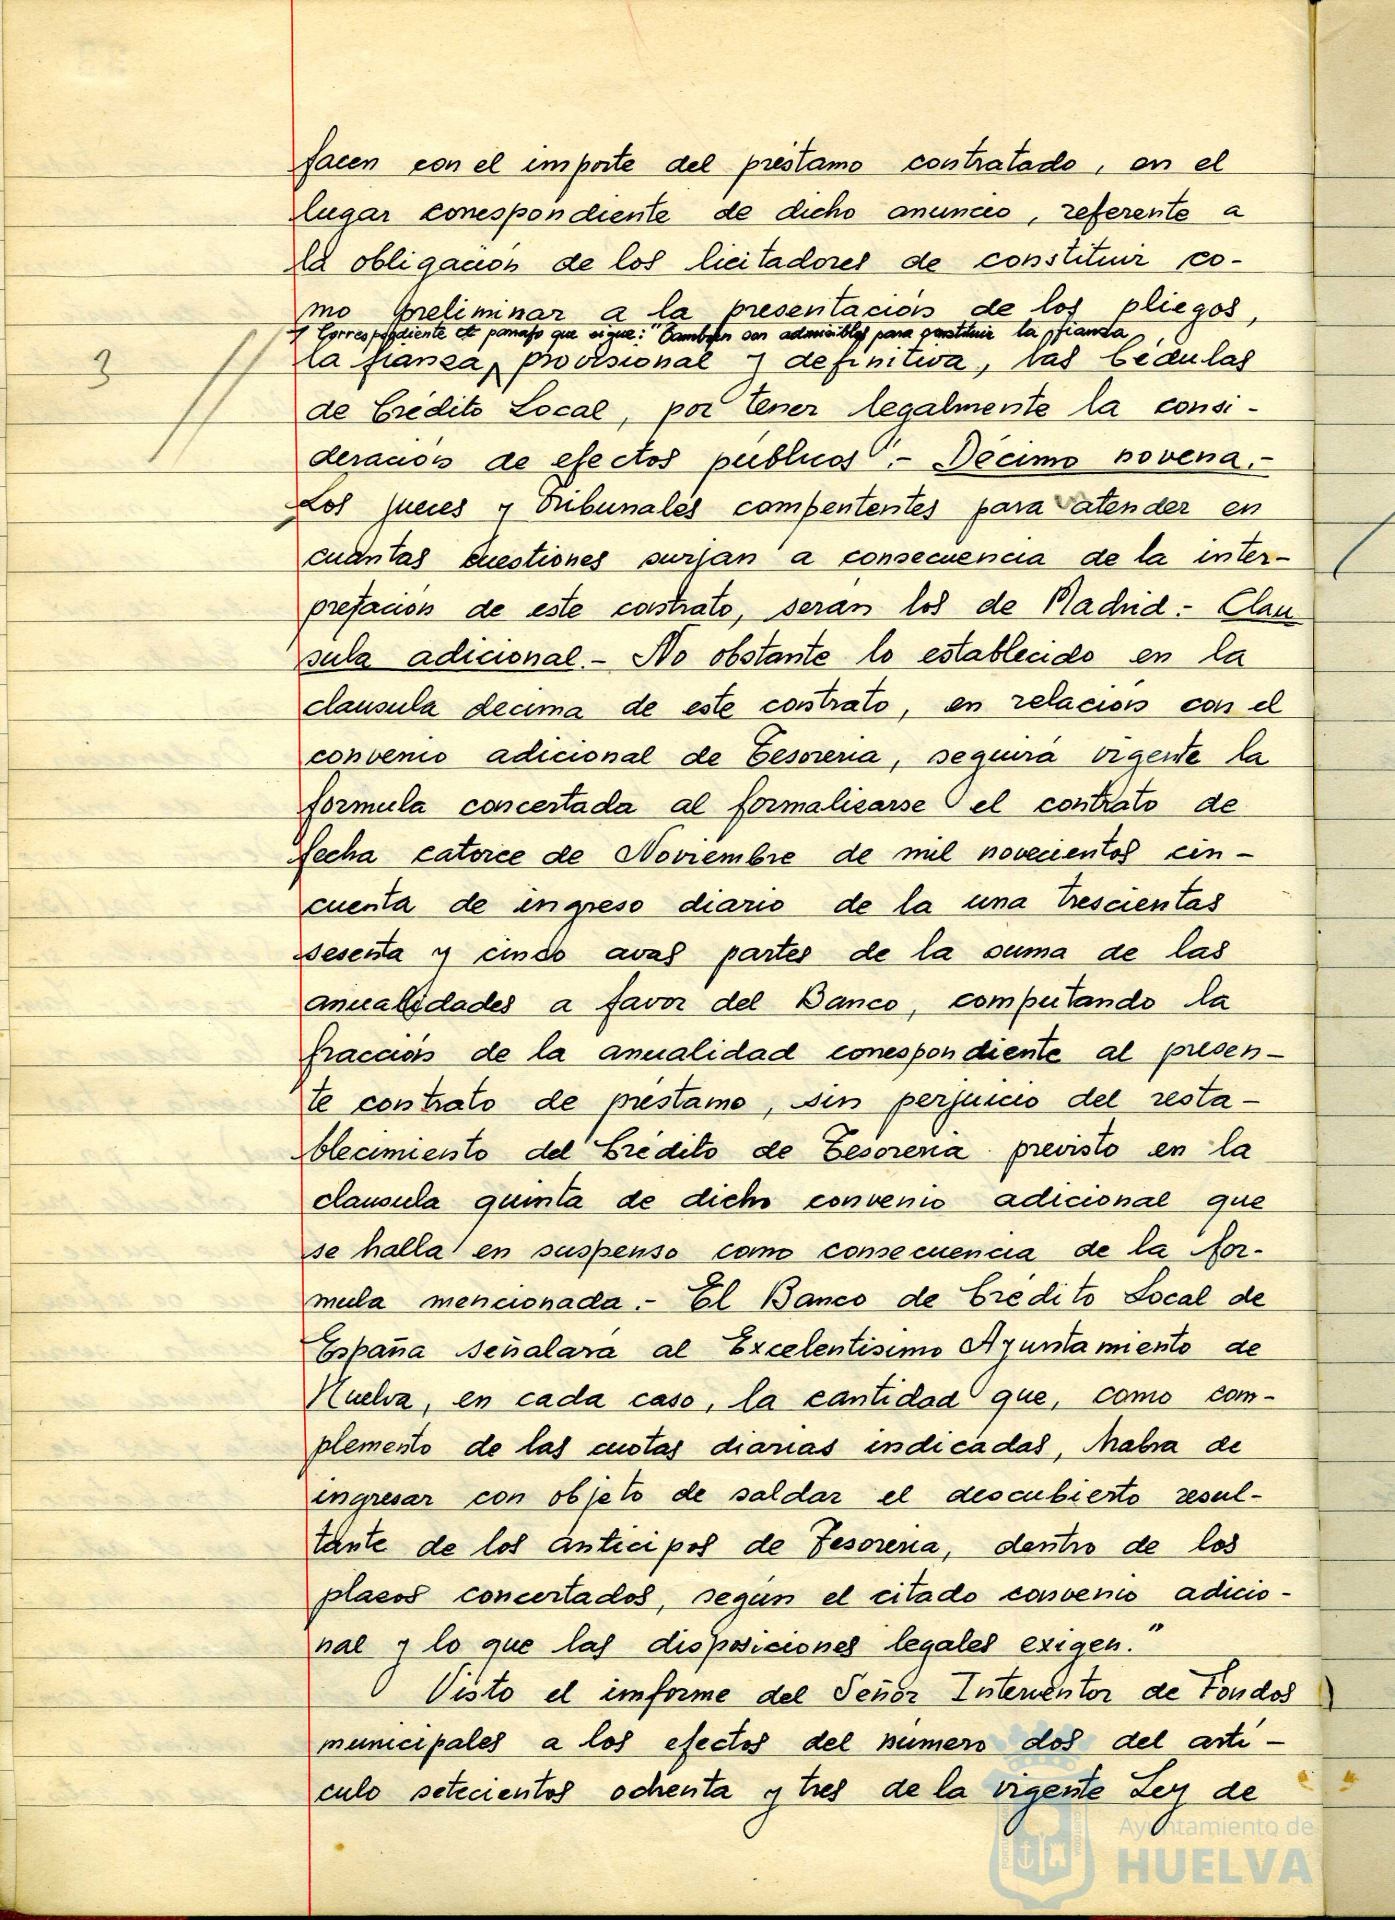 facen con el importe del préstamo contratado, en el
lugar correspondiente de dicho anuncio, referente a
la obligación de los licitadores de constituir co-
mo preliminar a la presentación de los pliegos,
y correspondiente et parrafo que sigue: "Tambien son admisibles para constituir la fianza
3
la fianza, provisional y definitiva, las Cédulas
de Crédito Local, por tener legalmente la consi-
deración de efectos públicos".- Décimo novena.-
Los jueces y Tribunales compententes para atender en
cuantas cuestiones surjan a consecuencia de la inter-
pretación de este contrato, serán los de Madrid.- Clau
sula adicional.- No obstante lo establecido en la
clausula decima de este contrato, en relación con el
convenio adicional de Tesoreria, seguirá vigente la
formula concertada al formalizarse el contrato de
fecha catorce de Noviembre de mil novecientos cin-
cuenta de ingreso diario de la una trescientas
sesenta y cinco avas partes de la suma de las
anualidades a favor del Banco, computando la
fracción de la anualidad correspondiente al presen-
te contrato de préstamo, sin perjuicio del resta-
blecimiento del Crédito de Tesoreria previsto en la
clausula quinta de dicho convenio adicional que
se halla en suspenso como consecuencia de la for-
mula mencionada.- El Banco de Crédito Local de
España señalará al Excelentisimo Ayuntamiento de
Huelva, en cada caso, la cantidad que, como com-
plemento de las cuotas diarias indicadas, habra de
ingresar con objeto de saldar el descubierto resul-
tante de los anticipos de Tesoreria, dentro de los
plazos concertados, según el citado convenio adicio-
nal y lo que las disposiciones legales exigen."
Visto el imforme del Señor Interventor de Fondos
municipales a los efectos del número dos del artí-
culo setecientos ochenta y tres de la vigente Ley de
Ayuntamiento de
HUELVA